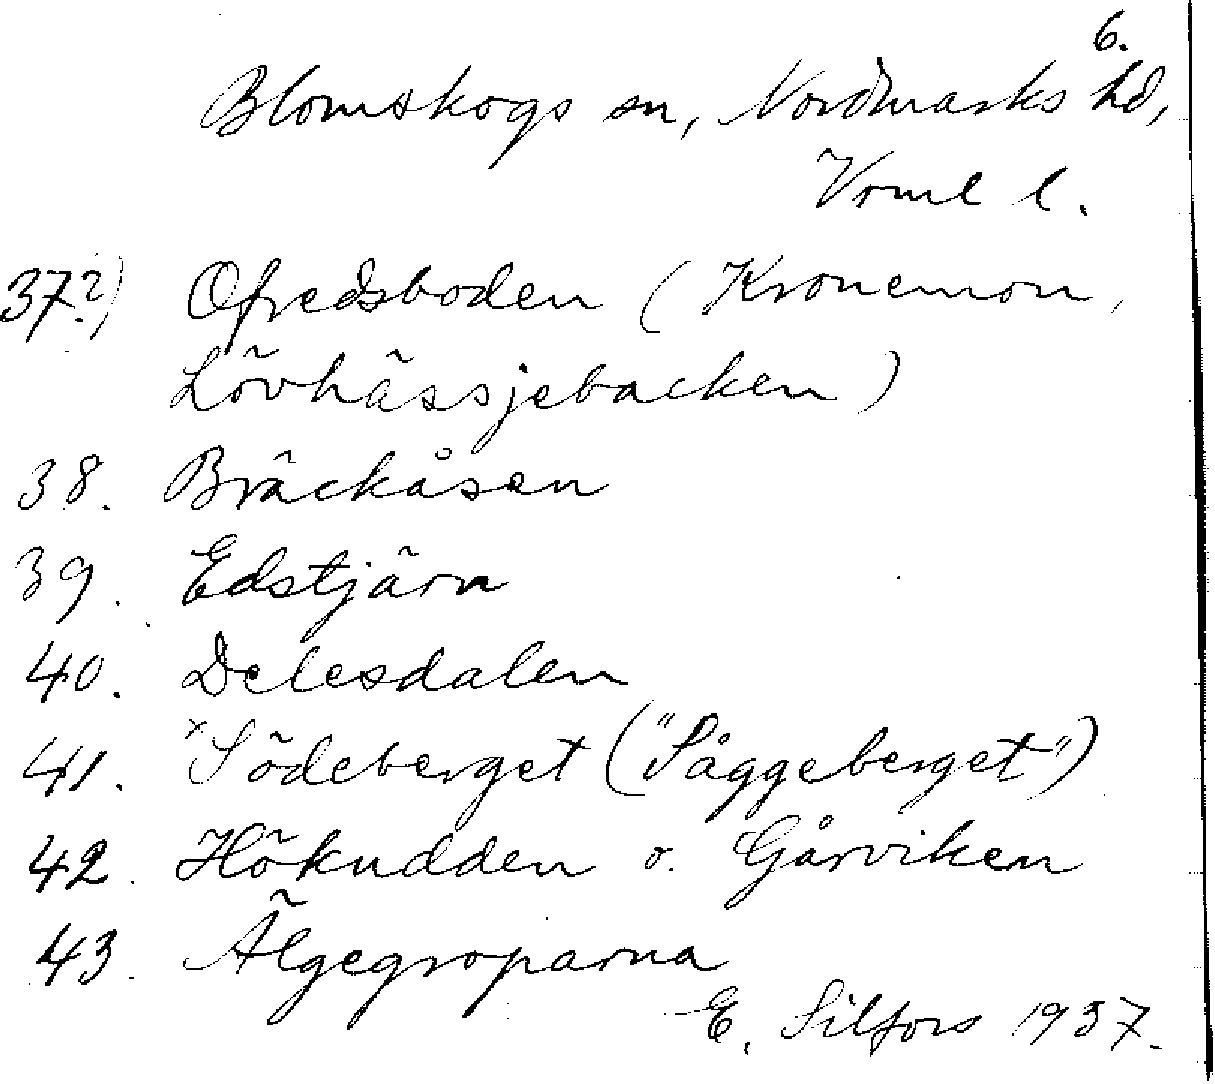 6.
Blomskogs sn, Nordmarks hd,
Vrml l.
37?) Ofredsboden (Kronemon,
Lövhässjebacken)
38. Bräckåsen
39. Edstjärn
40. Delesdalen
41. x Södeberget ("Såggeberget")
42. Hökudden o. Gårviken
43. Älgegroparna
E. Silfors 1937.